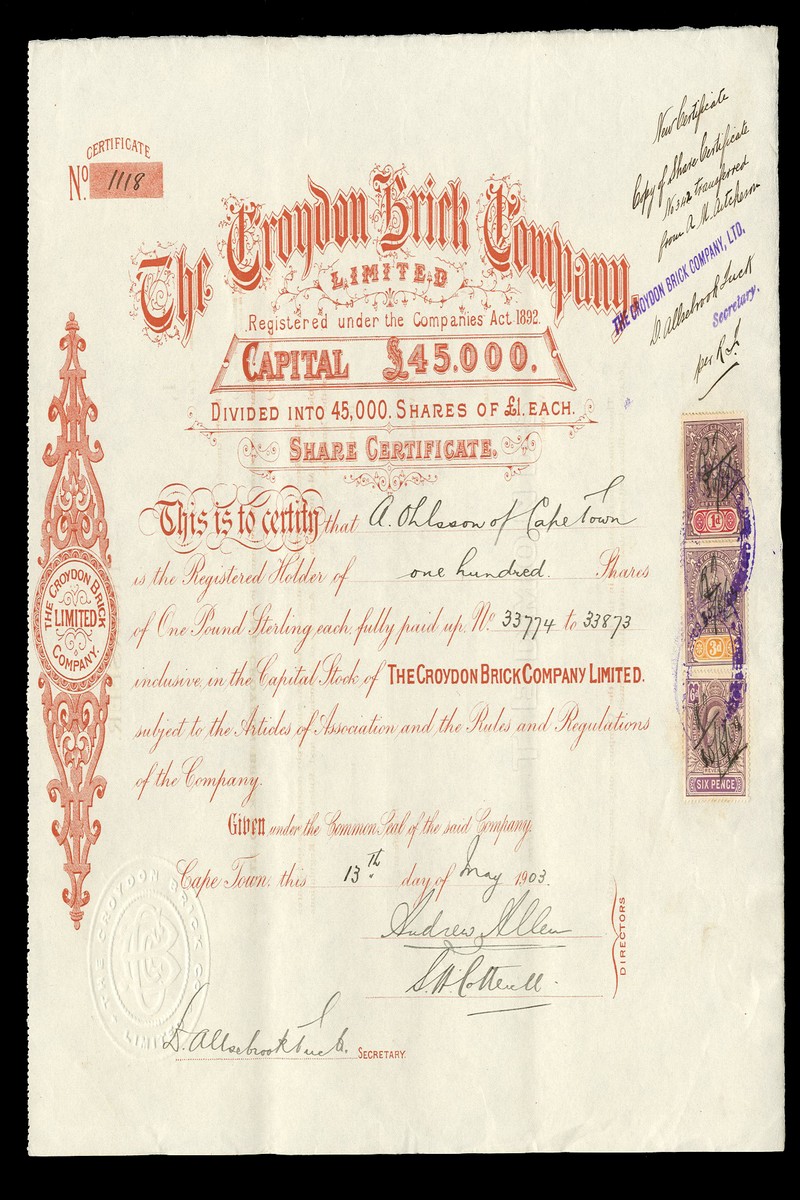 CERTIFICATE
No 1118
New Certificate
Copy of Share Certificate
No 342 transferred
from A. M. Aitcheson
THE CROYDON BRICK COMPANY, LTD.
D. Allsebrook Tuck
Secretary.
per
The Croydon Brick Company
LIMITED
Registered under the Companies Act 1892.
CAPITAL £45.000.
DIVIDED INTO 45,000. SHARES OF £1. EACH.
SHARE CERTIFICATE.
This is to certify that A. Ohlsson of Cape Town
is the Registered Holder of one hundred. Shares
of One Pound Sterling each, fully paid up, No. 33774 to 33873
inclusive, in the Capital Stock of THE CROYDON BRICK COMPANY LIMITED.
subject to the Articles of Association and the Rules and Regulations
of the Company.
Given under the Common Seal of the said Company.
Cape Town, this 13th day of May 1903.
Andrew Allen
S. H. Cotterell.
DIRECTORS
D. Allsebrook Tuck. SECRETARY.
THE CROYDON BRICK
LIMITED
COMPANY.
THE CROYDON BRICK CO
LIMITED
1d
3d
6d
SIX PENCE